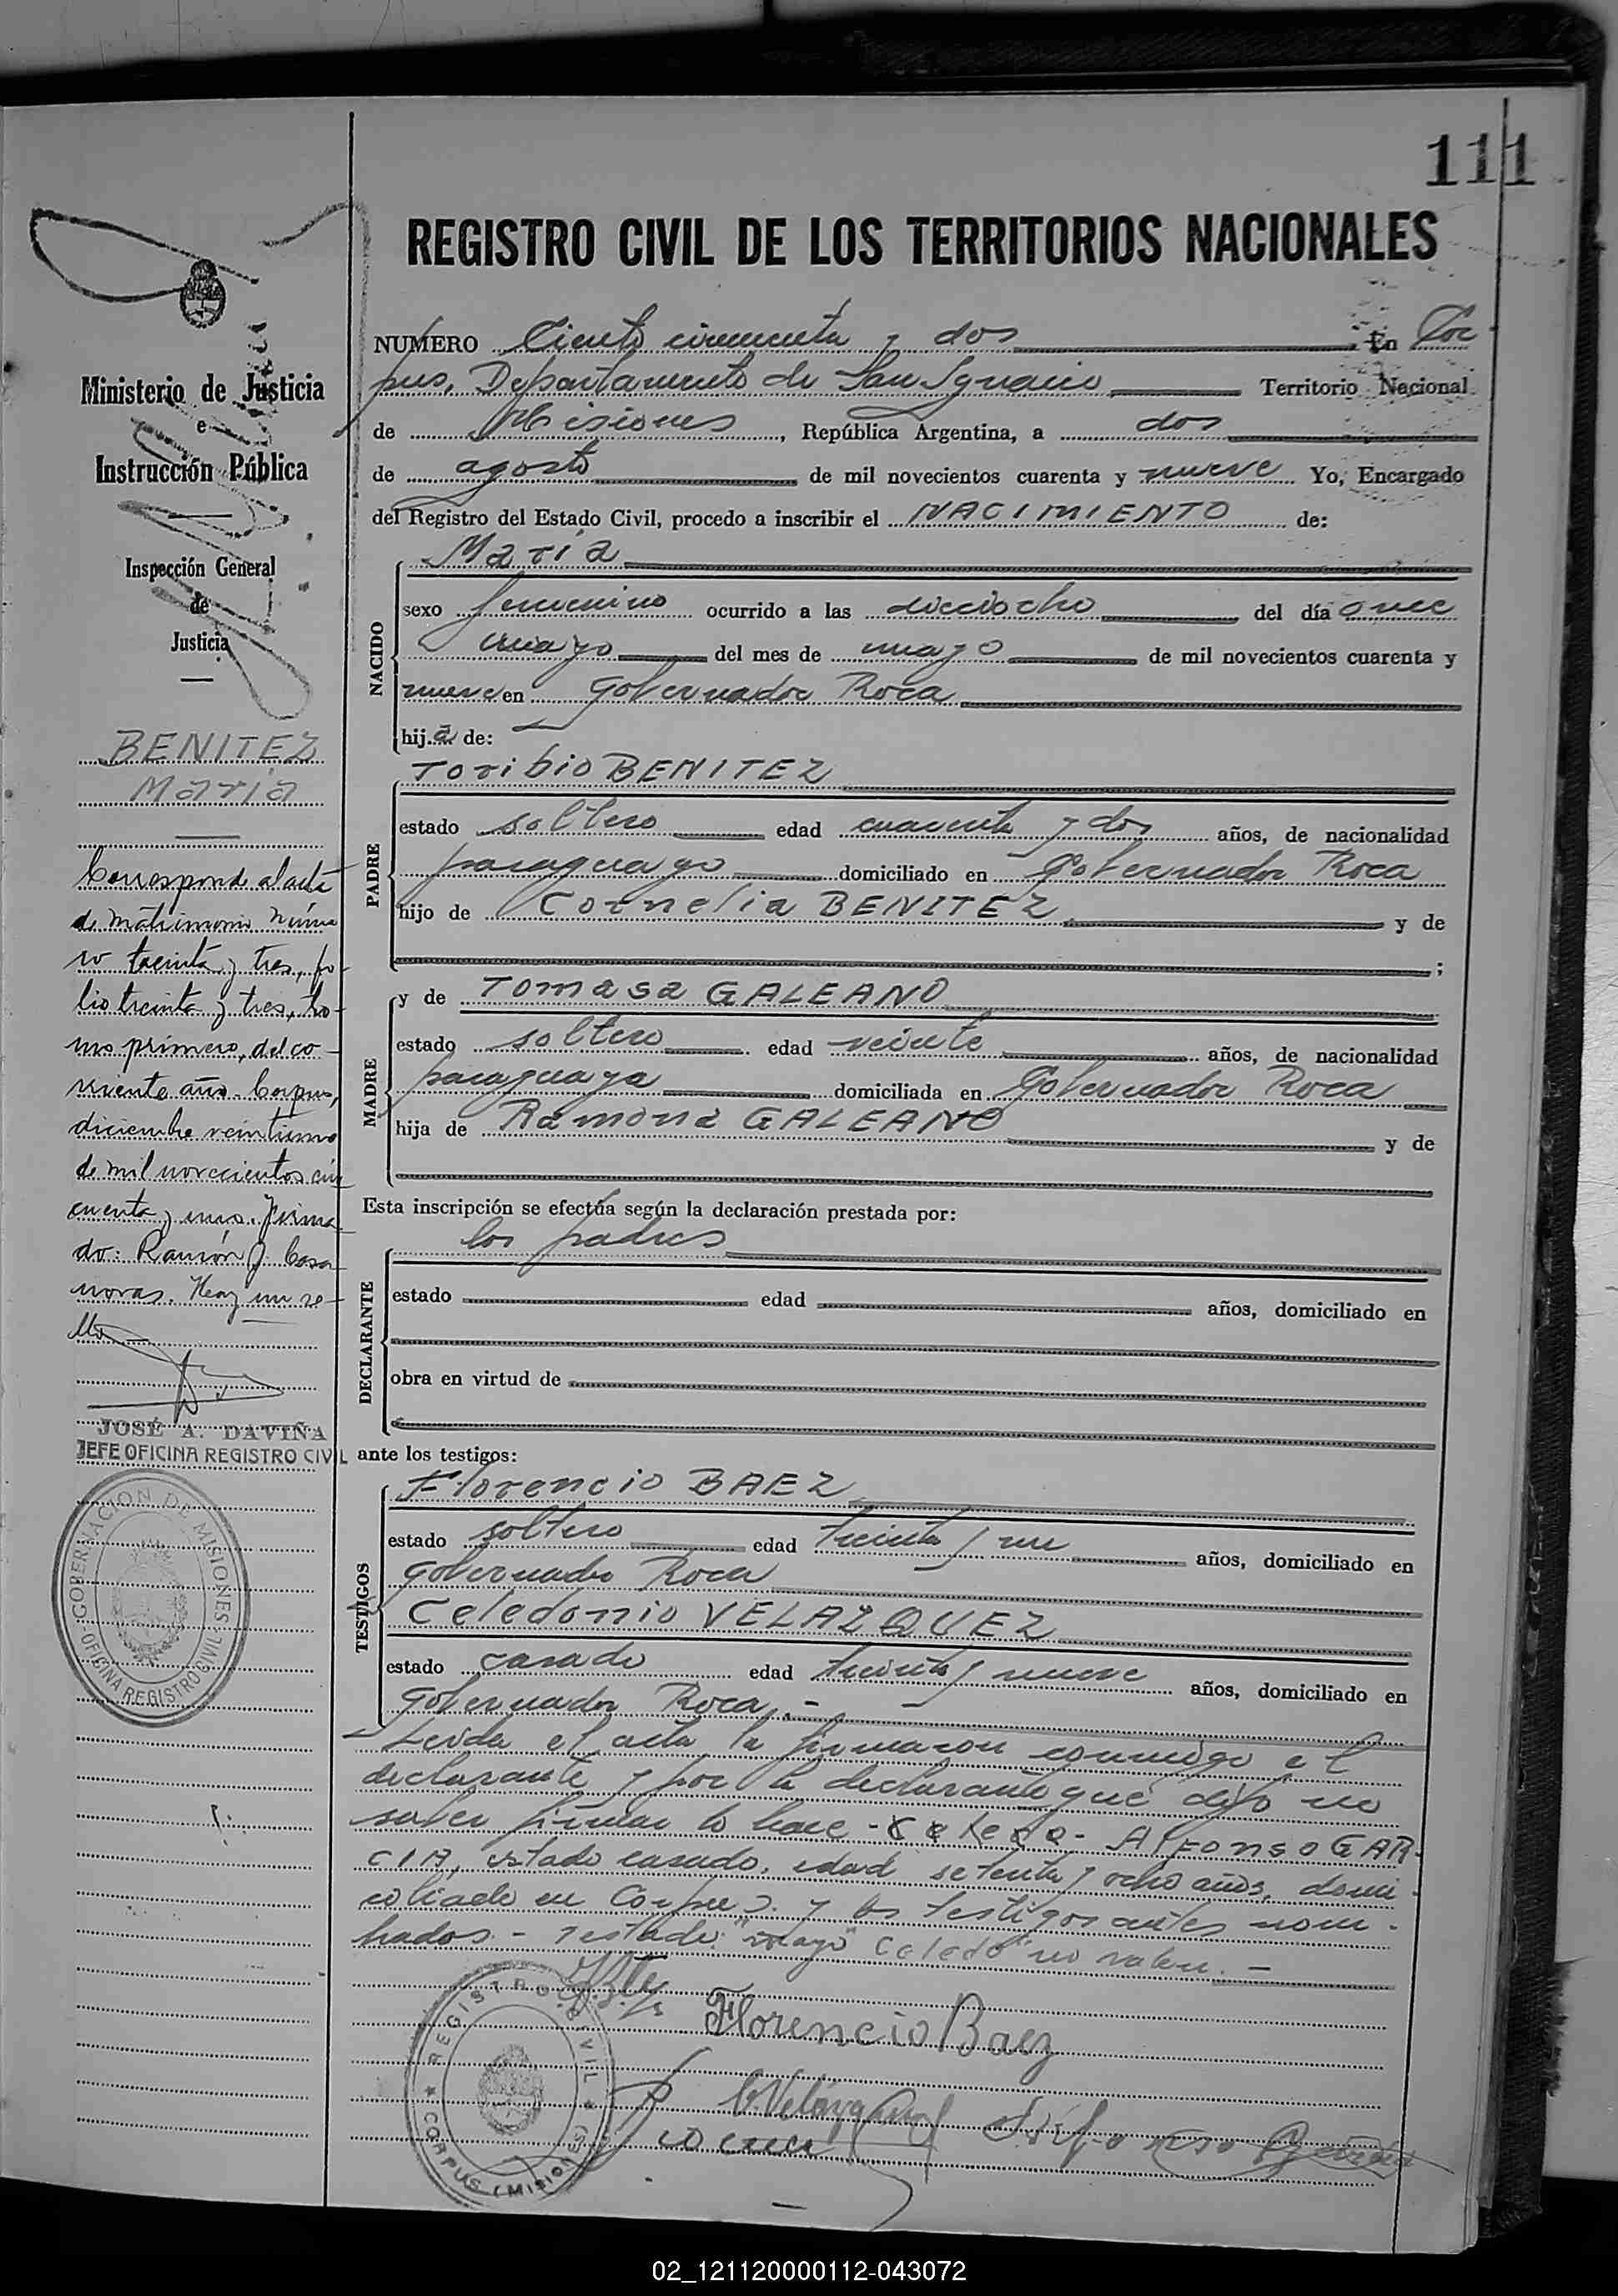 111
REGISTRO CIVIL DE LOS TERRITORIOS NACIONALES
Ministerio de Justicia
e
Instrucción Pública
Inspección General
de
Justicia
BENITEZ
Maria
Corresponde al acta
de matrimonio núme
ro treinta y tres, fo-
lio treinta y tres, to-
mo primero, del co-
rriente año. Corpus,
diciembre veintiuno
de mil novecientos cin
cuenta y uno. Firma
do: Ramón J. Casa
novas. Hay un se-
llo
JOSÉ A. DAVIÑA
JEFE OFICINA REGISTRO CIVIL
GOBERNACION DE MISIONES
OFICINA REGISTRO CIVIL
NUMERO Ciento cincuenta y dos En Cor
pus, Departamento de San Ignacio Territorio Nacional
de Misiones, República Argentina, a dos
de agosto de mil novecientos cuarenta y nueve Yo, Encargado
del Registro del Estado Civil, procedo a inscribir el NACIMIENTO de:
NACIDO
Maria
sexo femenino ocurrido a las dieciocho del día once
mayo del mes de mayo de mil novecientos cuarenta y
nueve en Gobernador Roca
hija de:
PADRE
Toribio BENITEZ
estado soltero edad cuarenta y dos años, de nacionalidad
paraguayo domiciliado en Gobernador Roca
hijo de Cornelia BENITEZ y de
;
MADRE
y de Tomasa GALEANO
estado soltera edad veinte años, de nacionalidad
paraguaya domiciliada en Gobernador Roca
hija de Ramona GALEANO y de
Esta inscripción se efectúa según la declaración prestada por:
DECLARANTE
los padres
estado edad años, domiciliado en
obra en virtud de
ante los testigos:
TESTIGOS
Florencio BAEZ
estado soltero edad treinta y un años, domiciliado en
Gobernador Roca
Celedonio VELAZQUEZ
estado casado edad treinta y nueve años, domiciliado en
Gobernador Roca.-
Leida el acta la firmaron conmigo el
declarante y por la declarante que dijo no
saber firmar lo hace - Celedo - Alfonso GAR-
CIA, estado casado, edad setenta y ocho años, domi-
ciliado en Corpus. y los testigos antes nom-
brados - Testado: "mayo" Celedo" no valen. -
Florencio Baez
C. Velázquez
Alfonso Garcia
REGISTRO CIVIL
CORPUS (MISIONES)
02_121120000112-043072